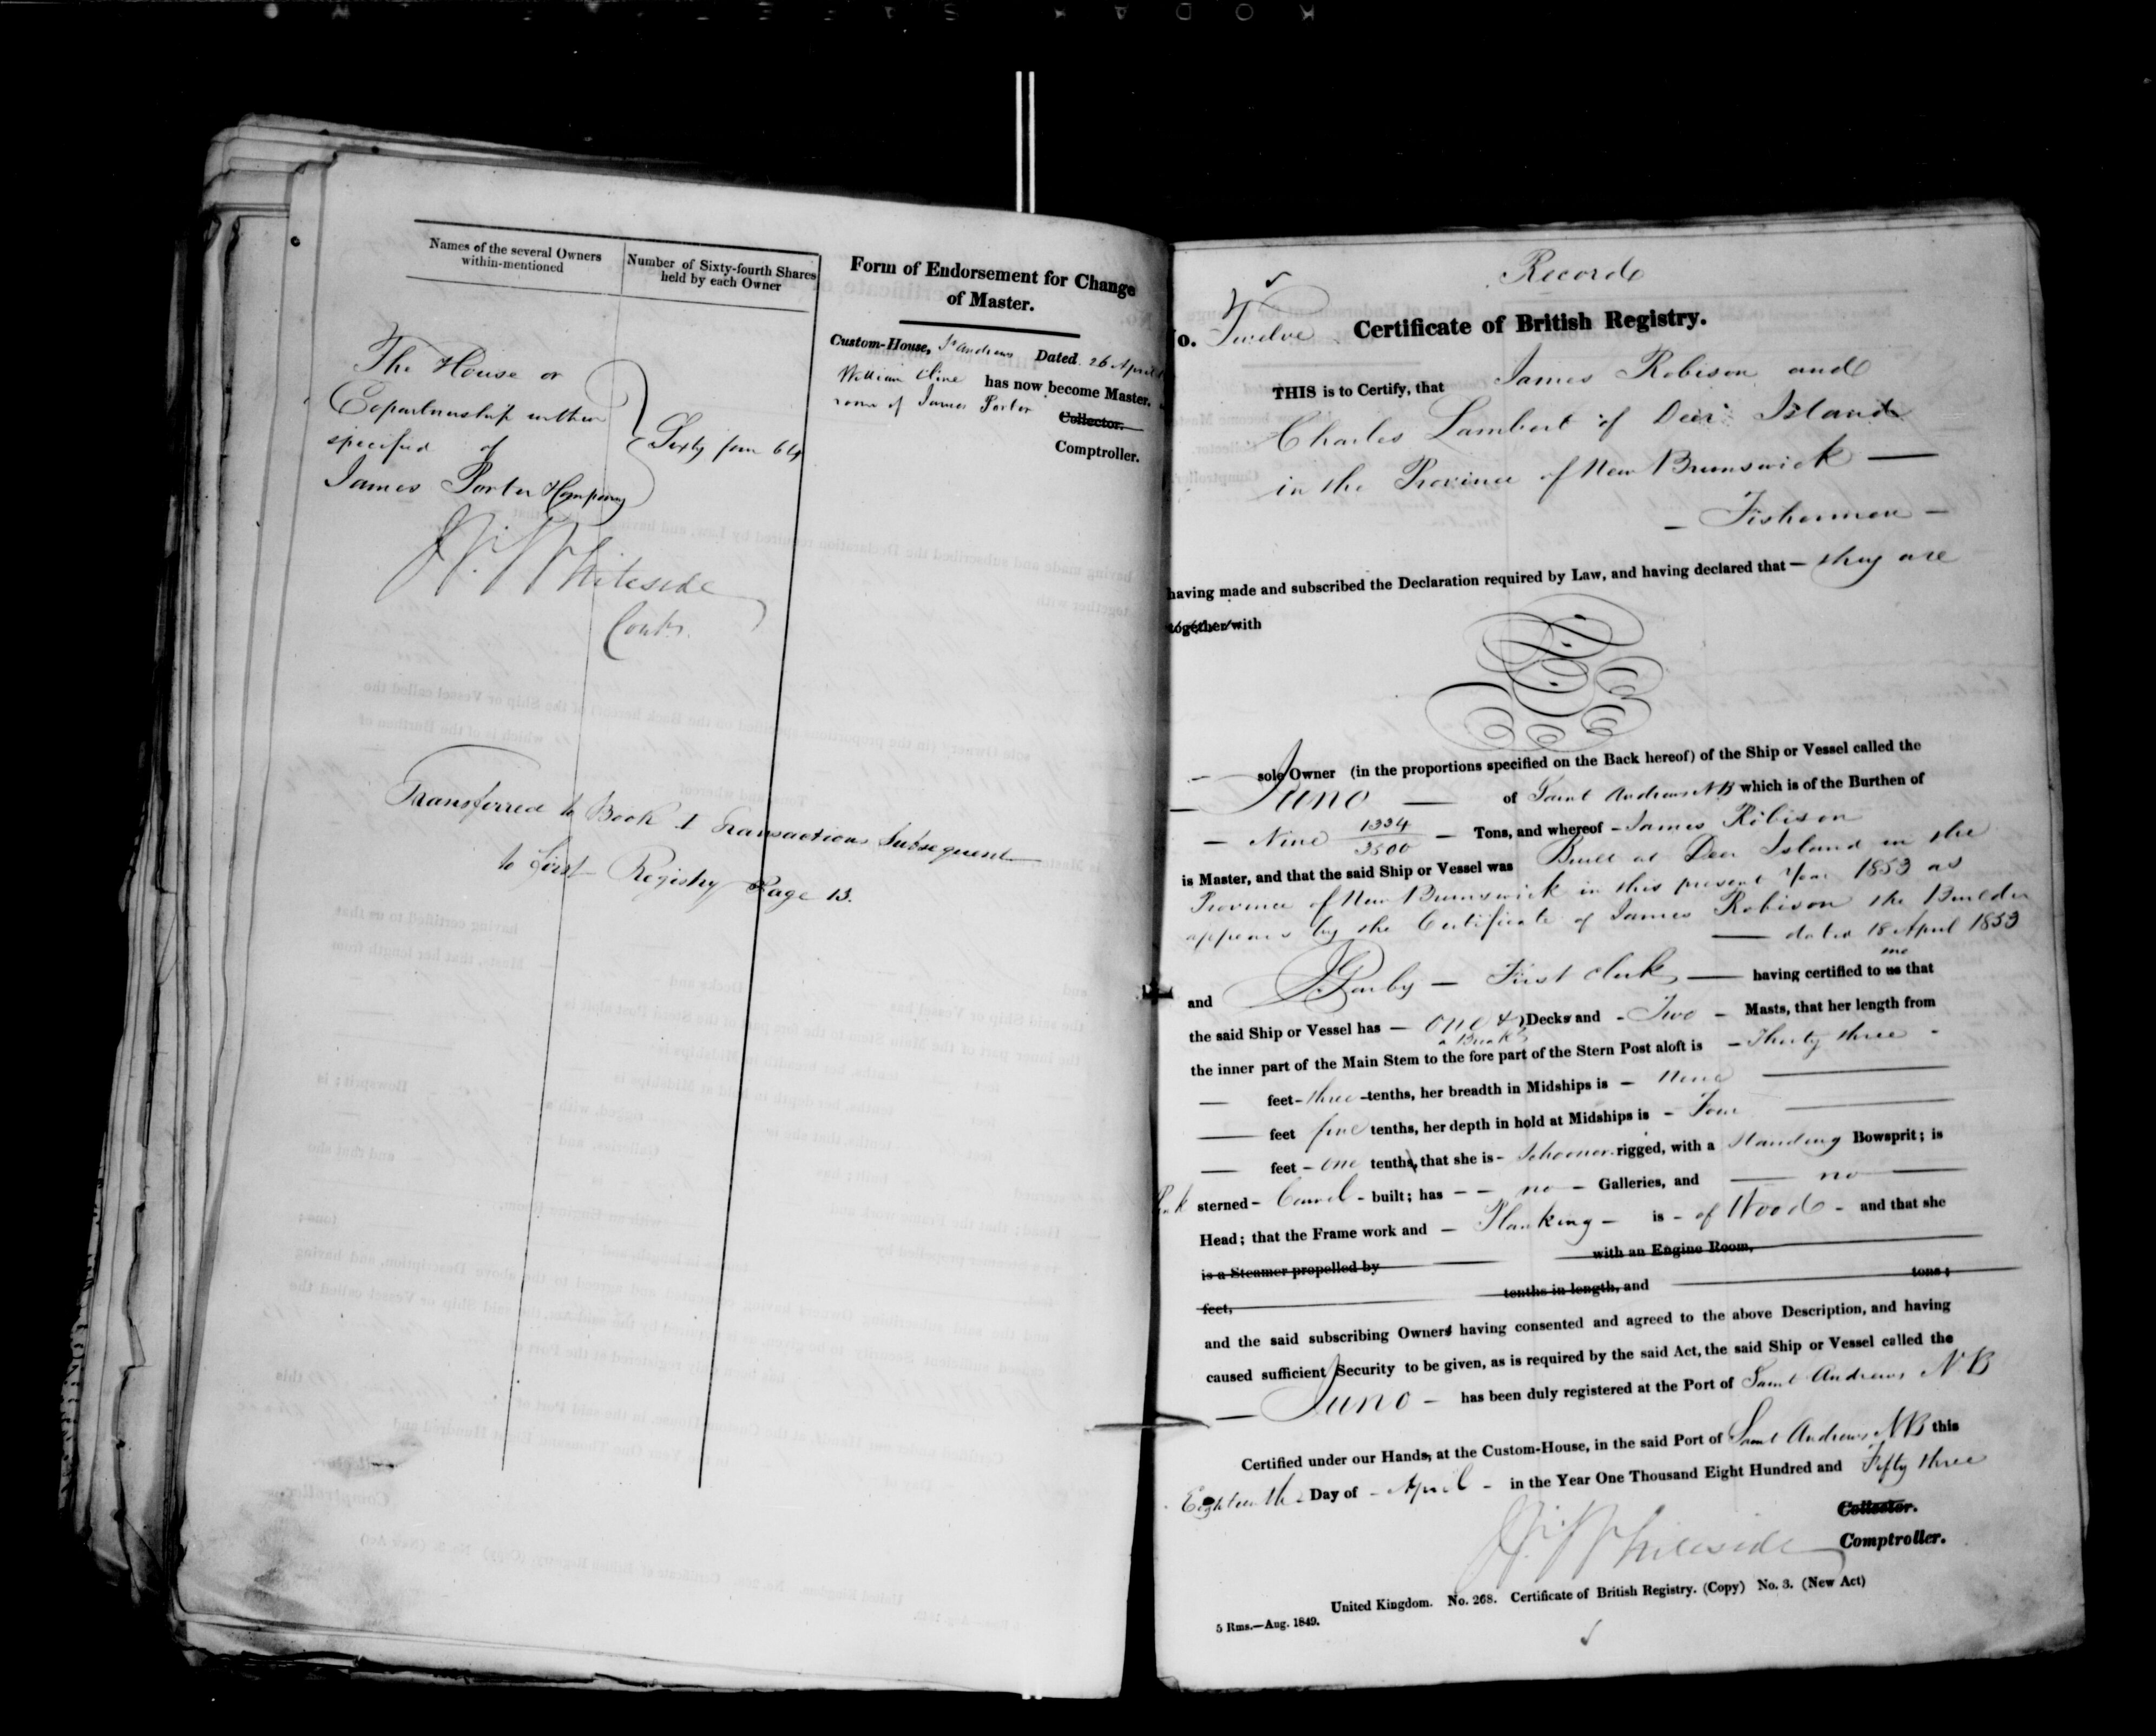 Names of the several Owners
within-mentioned
Number of Sixty-fourth Shares
held by each Owner
The House or
Copartnership within
specified of
James Porter & Company
Sixty four 64
J. Whiteside
Comptr.
Transferred to Book 1 Transactions Subsequent
to first Registry Page 13.
Form of Endorsement for Change
of Master.
Custom-House, St Andrews Dated 26 April
William Cline has now become Master.
room of James Porter
Collector.
Comptroller.
Record
No. Twelve Certificate of British Registry.
THIS is to Certify, that James Robison and
Charles Lambert of Deer Island
in the Province of New Brunswick —
— Fishermen —
having made and subscribed the Declaration required by Law, and having declared that — they are
together with
— sole Owner (in the proportions specified on the Back hereof) of the Ship or Vessel called the
— Juno — of Saint Andrews NB which is of the Burthen of
— Nine 1334/3500 — Tons, and whereof - James Robison
is Master, and that the said Ship or Vessel was Built at Deer Island in the
Province of New Brunswick in this present Year 1853 as
appears by the Certificate of James Robison the Builder
— dated 18 April 1853
and — First Clerk — having certified to us me that
the said Ship or Vessel has — one & a Break Decks and - Two - Masts, that her length from
the inner part of the Main Stem to the fore part of the Stern Post aloft is - Thirty three -
— feet - three - tenths, her breadth in Midships is - Nine —
— feet five tenths, her depth in hold at Midships is - Four —
— feet - one tenths, that she is - Schooner rigged, with a Standing Bowsprit; is
Pink sterned - Carvel - built; has - - no - Galleries, and — no —
Head; that the Frame work and - Planking - is - of Wood - and that she
is a Steamer propelled by with an Engine Room,
feet, tenths in length, and tons;
and the said subscribing Owners having consented and agreed to the above Description, and having
caused sufficient Security to be given, as is required by the said Act, the said Ship or Vessel called the
— Juno - has been duly registered at the Port of Saint Andrews N B
Certified under our Hands, at the Custom-House, in the said Port of Saint Andrews NB this
Eighteenth Day of - April - in the Year One Thousand Eight Hundred and Fifty three
Collector.
J. Whiteside Comptroller.
United Kingdom. No. 268. Certificate of British Registry. (Copy) No. 3. (New Act)
5 Rms.—Aug. 1849.